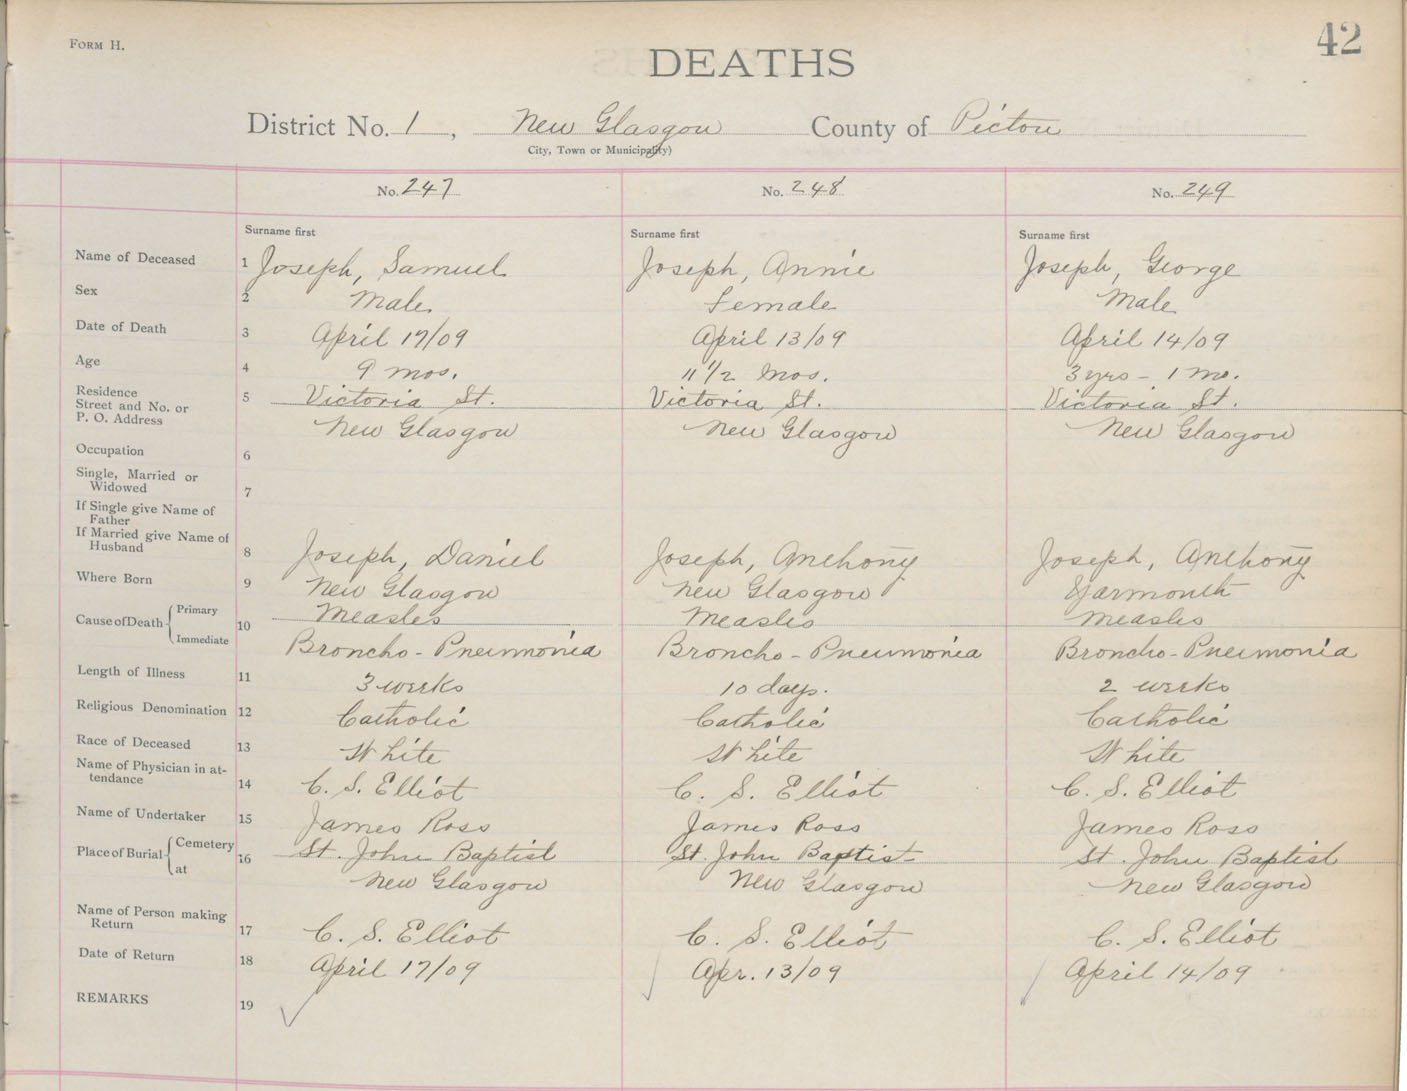 FORM H.
42
DEATHS
District No. 1, New Glasgow County of Pictou
City, Town or Municipality)
No. 247 No. 248 No. 249
Surname first Surname first Surname first
Name of Deceased 1 Joseph, Samuel Joseph, Annie Joseph, George
Sex 2 Male Female Male
Date of Death 3 April 17/09 April 13/09 April 14/09
Age 4 9 mos. 11 1/2 mos. 3 yrs - 1 mo.
Residence
Street and No. or 5 Victoria St. Victoria St. Victoria St.
P. O. Address New Glasgow New Glasgow New Glasgow
Occupation 6
Single, Married or
Widowed 7
If Single give Name of
Father
If Married give Name of
Husband 8 Joseph, Daniel Joseph, Anthony Joseph, Anthony
Where Born 9 New Glasgow New Glasgow Yarmouth
Cause of Death { Primary 10 Measles Measles Measles
Immediate Broncho-Pneumonia Broncho-Pneumonia Broncho-Pneumonia
Length of Illness 11 3 weeks 10 days. 2 weeks
Religious Denomination 12 Catholic Catholic Catholic
Race of Deceased 13 White White White
Name of Physician in at-
tendance 14 C. S. Elliot C. S. Elliot C. S. Elliot
Name of Undertaker 15 James Ross James Ross James Ross
Place of Burial { Cemetery 16 St. John Baptist St. John Baptist St. John Baptist
at New Glasgow New Glasgow New Glasgow
Name of Person making
Return 17 C. S. Elliot C. S. Elliot C. S. Elliot
Date of Return 18 April 17/09 Apr. 13/09 April 14/09
REMARKS 19